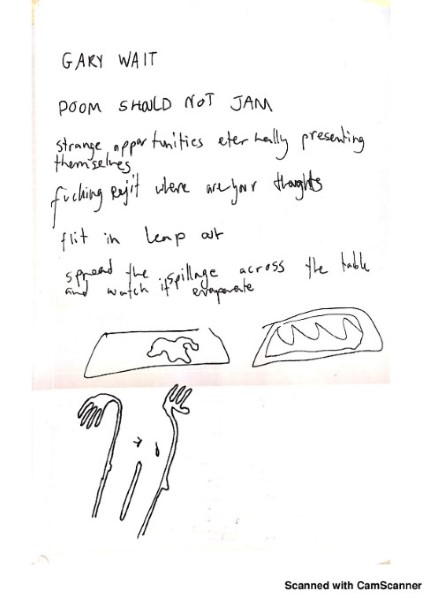 GARY WAIT
POOM SHOULD NOT JAM
strange opportunities eternally presenting
themselves
fucking eejit where are your thoughts
flit in leap out
spread the spillage across the table
and watch it evaporate
Scanned with CamScanner